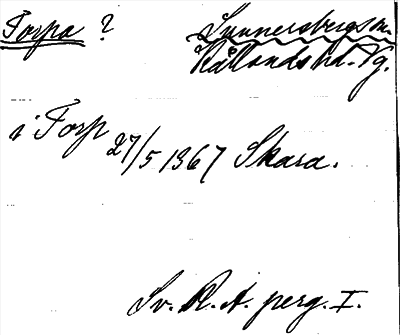 Torpa ? Sunnersbergs sn.
Kållands hd. Vg.
i Torp 27/5 1367 Skara.
Sv. R. A. perg. I.